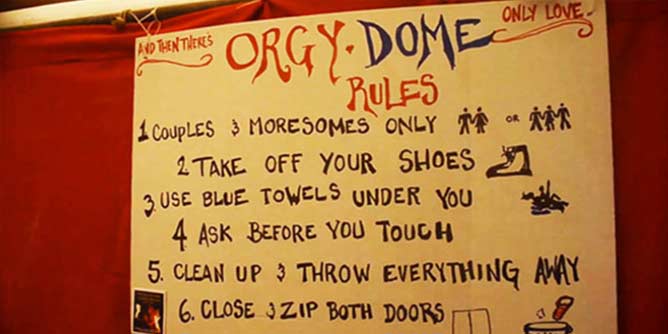 AND THEN THERE'S
ORGY · DOME
ONLY LOVE.
RULES
1 COUPLES & MORESOMES ONLY OR
2 TAKE OFF YOUR SHOES
3. USE BLUE TOWELS UNDER YOU
4 ASK BEFORE YOU TOUCH
5. CLEAN UP & THROW EVERYTHING AWAY
6. CLOSE & ZIP BOTH DOORS